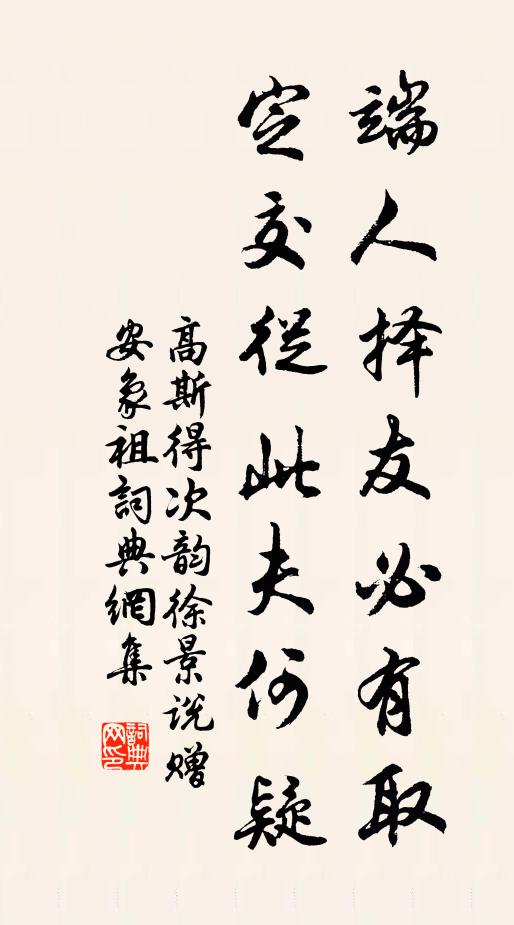 端人择友必有取
定交從此夫何疑
高斯得次韵徐景说赠
安象祖詞典網集
詞典网印